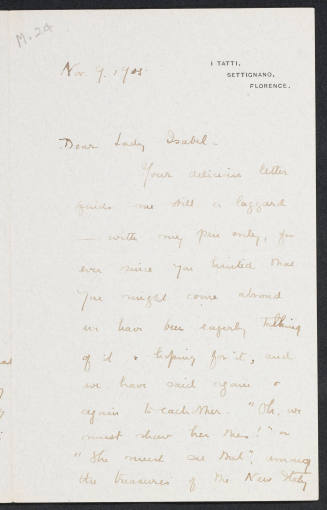 M.24
I TATTI,
SETTIGNANO,
FLORENCE.
Nov. 9. 1905
Dear Lady Isabel -
Your delicious letter
finds me still a laggard
— with my pen only, for
ever since you hinted that
you might come abroad
we have been eagerly talking
of it & hoping for it, and
we have said again &
again to each other "Oh, we
must show her this!" or
"She must see that", among
the treasures of the New Italy